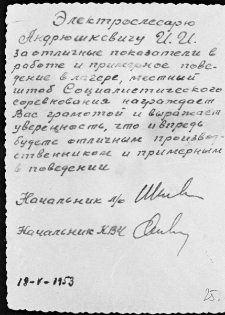 Электрослесарю
Андрюшкевичу И. И.
За отличные показатели в
работе и примерное пове-
дение в лагере, местный
штаб Социалистического
соревнования награждает
Вас грамотой и выражает
уверенность, что и впредь
будете отличным производ-
ственником и примерным
в поведении
Начальник л/о
Начальник КВЧ
18-V-1953
25.